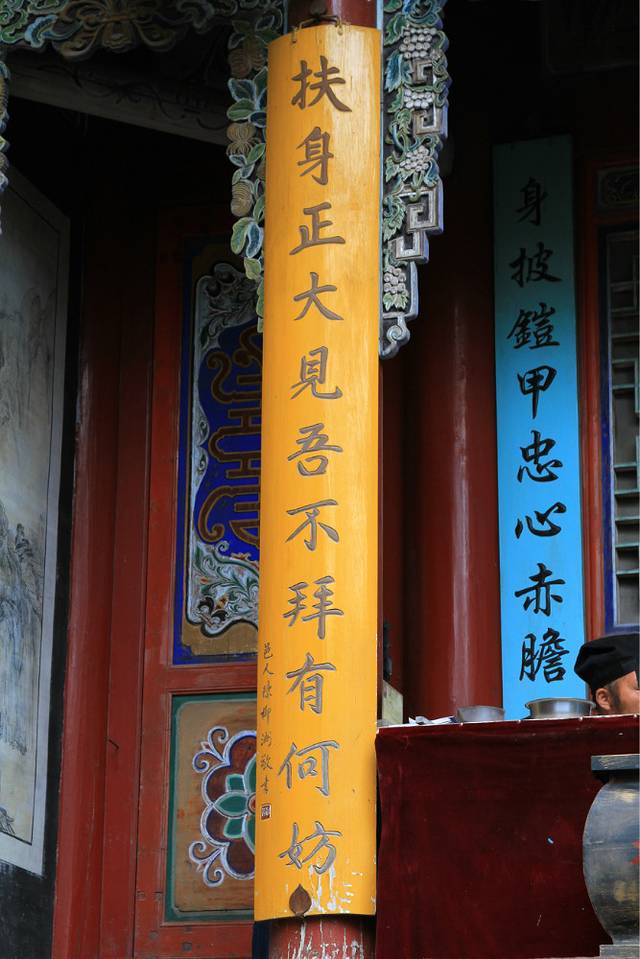 身披鎧甲忠心赤膽
扶身正大見吾不拜有何妨
邑人柳敬書